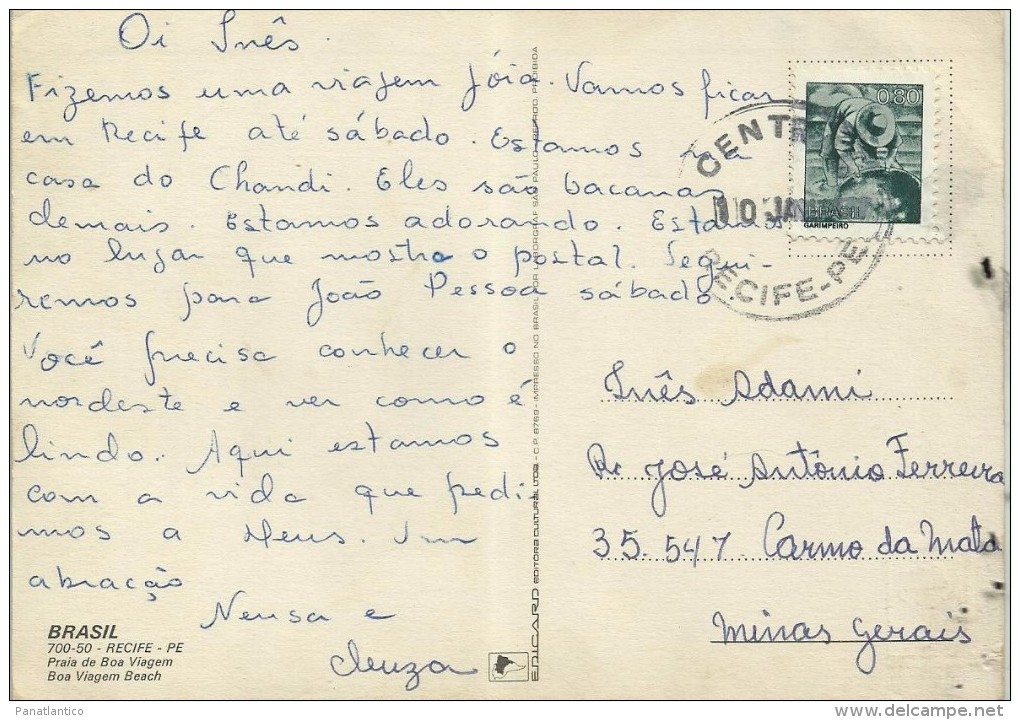 Oi Inês.
Fizemos uma viagem jóia. Vamos ficar
em Recife até sábado. Estamos na
casa do Chandi. Eles são bacanas
demais. Estamos adorando. Estamos
no lugar que mostra o postal. Segui-
remos para João Pessoa sábado.
Você precisa conhecer o
nordeste e ver como é
lindo. Aqui estamos
com a vida que pedi-
mos a Deus. Um
abração
Neusa e
Cleuza
BRASIL
700-50 - RECIFE - PE
Praia de Boa Viagem
Boa Viagem Beach
ERICARD EDITORA CULTURAL LTDA - C.P. 8769 - IMPRESSO NO BRASIL POR LABORGRAF SÃO PAULO - REPROD. PROIBIDA
080
BRASIL
GARIMPEIRO
CENTR
10 JAN
RECIFE-PE
Inês Adami
R: José Antônio Ferreira
35.547 Carmo da Mata
Minas Gerais
Panatlantico
delcampe.net